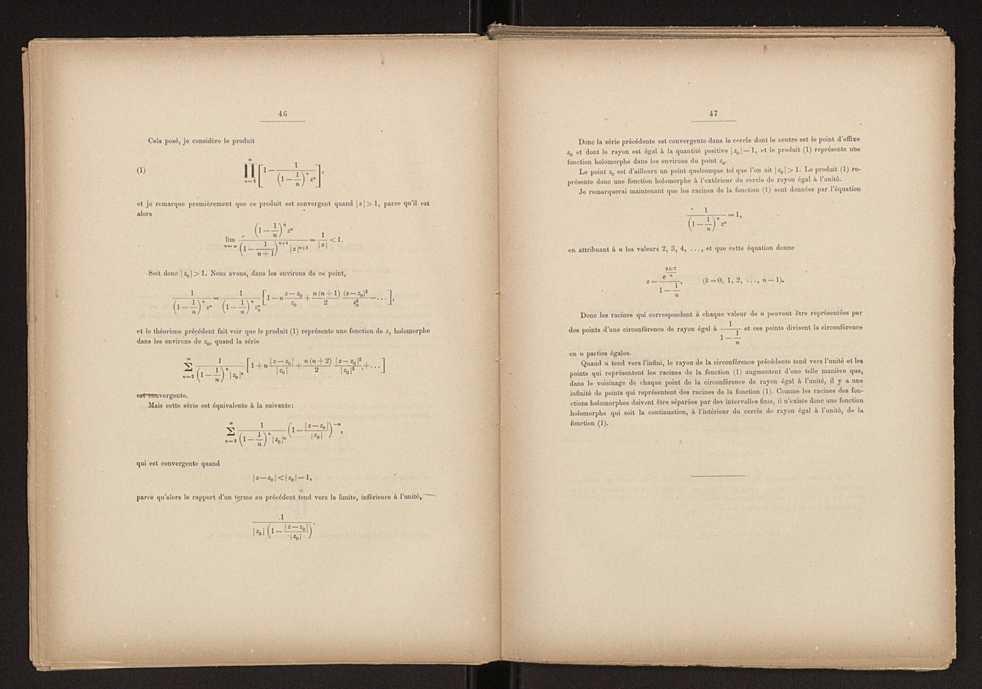 46
Cela posé, je considère le produit
(1) ∏_{n=2}^{∞} [1 − 1/((1 − 1/n)^n z^n)],
et je remarque premièrement que ce produit est convergent quand |z| > 1, parce qu'il est
alors
lim_{n=∞} ((1 − 1/n)^n z^n)/((1 − 1/(n+1))^{n+1} |z|^{n+1}) = 1/|z| < 1.
Soit donc |z₀| > 1. Nous avons, dans les environs de ce point,
1/((1 − 1/n)^n z^n) = 1/((1 − 1/n)^n z₀^n) [1 − n (z − z₀)/z₀ + (n(n+1)/2) (z − z₀)²/z₀² − ...],
et le théorème précédent fait voir que le produit (1) représente une fonction de z, holomorphe
dans les environs de z₀, quand la série
∑_{n=2}^{∞} 1/((1 − 1/n)^n |z₀|^n) [1 + n |z − z₀|/|z₀| + (n(n+2)/2) |z − z₀|²/|z₀|² + ...]
est convergente.
Mais cette série est équivalente à la suivante:
∑_{n=2}^{∞} 1/((1 − 1/n)^n |z₀|^n) (1 − |z − z₀|/|z₀|)^{−n},
qui est convergente quand
|z − z₀| < |z₀| − 1,
parce qu'alors le rapport d'un terme au précédent tend vers la limite, inférieure à l'unité,
1/(|z₀| (1 − |z − z₀|/|z₀|)).
47
Donc la série précédente est convergente dans le cercle dont le centre est le point d'affixe
z₀ et dont le rayon est égal à la quantité positive |z₀| − 1, et le produit (1) représente une
fonction holomorphe dans les environs du point z₀.
Le point z₀ est d'ailleurs un point quelconque tel que l'on ait |z₀| > 1. Le produit (1) re-
présente donc une fonction holomorphe à l'extérieur du cercle de rayon égal à l'unité.
Je remarquerai maintenant que les racines de la fonction (1) sont données par l'équation
1/((1 − 1/n)^n z^n) = 1,
en attribuant à n les valeurs 2, 3, 4, ..., et que cette équation donne
z = e^{2kiπ/n}/(1 − 1/n), (k = 0, 1, 2, ..., n − 1).
Donc les racines qui correspondent à chaque valeur de n peuvent être représentées par
des points d'une circonférence de rayon égal à 1/(1 − 1/n) et ces points divisent la circonférence
en n parties égales.
Quand n tend vers l'infini, le rayon de la circonférence précédente tend vers l'unité et les
points qui représentent les racines de la fonction (1) augmentent d'une telle manière que,
dans le voisinage de chaque point de la circonférence de rayon égal à l'unité, il y a une
infinité de points qui représentent des racines de la fonction (1). Comme les racines des fon-
ctions holomorphes doivent être séparées par des intervalles finis, il n'existe donc une fonction
holomorphe qui soit la continuation, à l'intérieur du cercle de rayon égal à l'unité, de la
fonction (1).